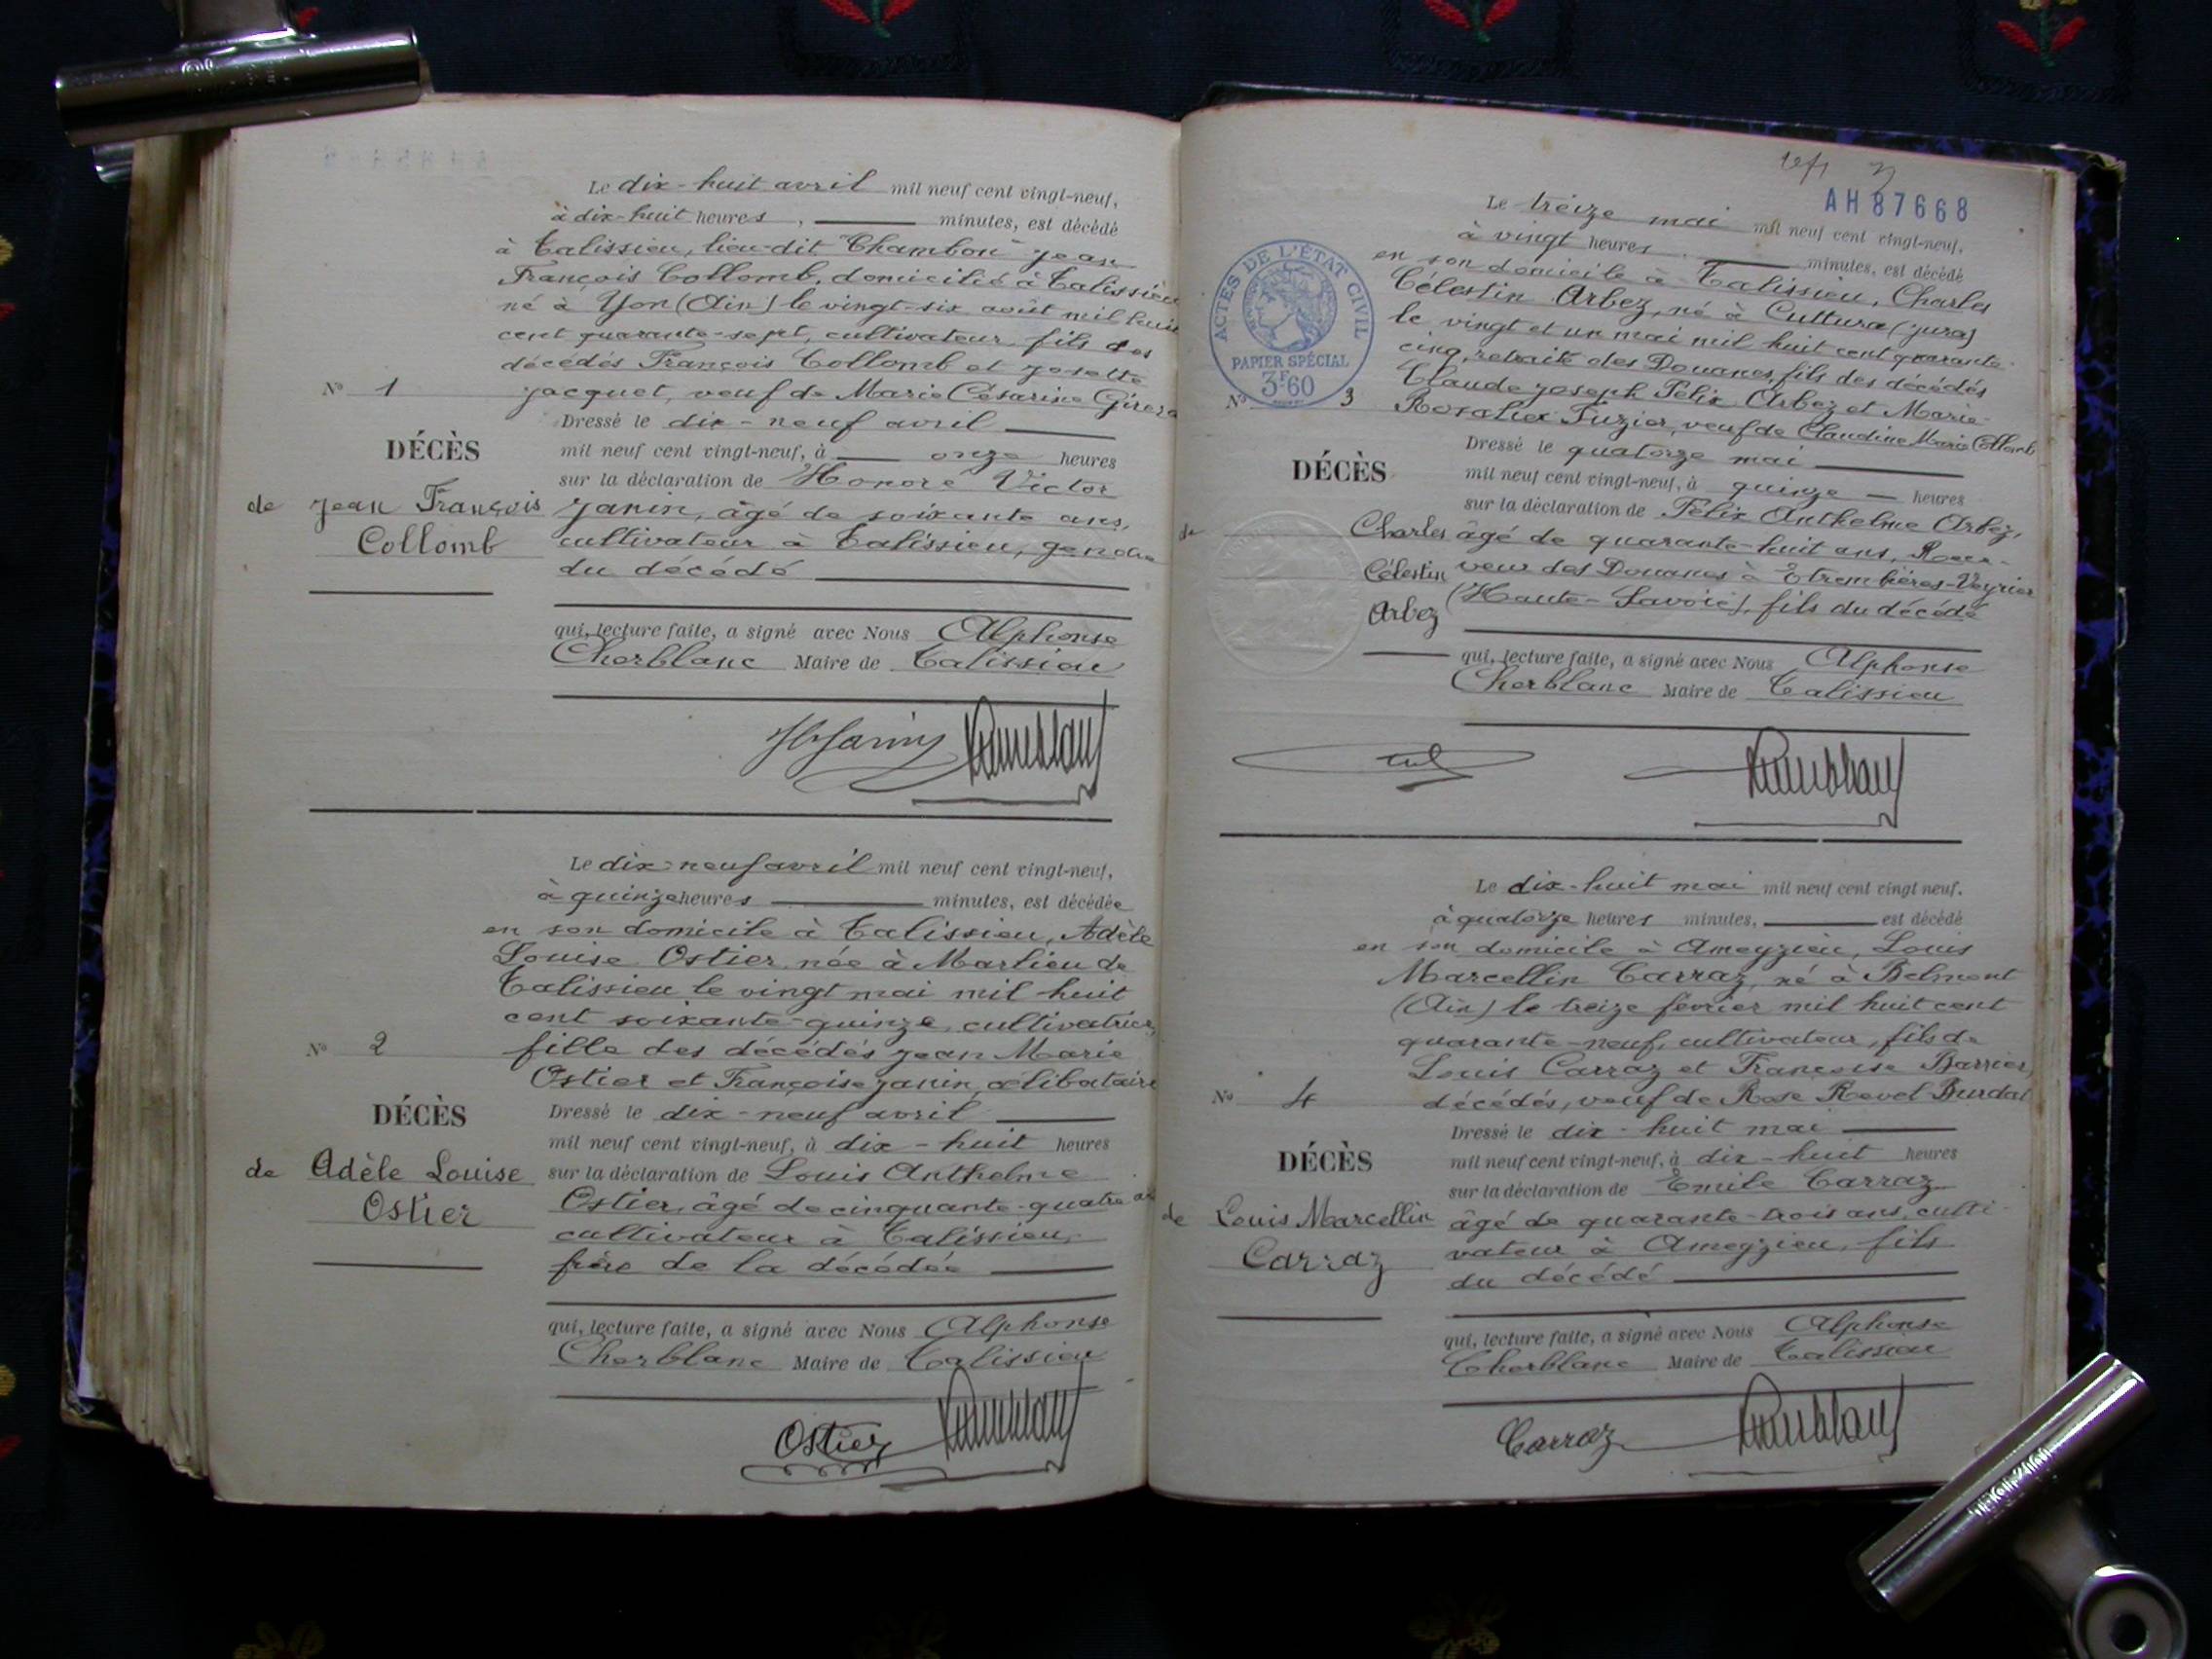 Le dix-huit avril mil neuf cent vingt-neuf,
à dix-huit heures, minutes, est décédé
à Talissieu, lieu-dit Chambon Jean
François Collomb, domicilié à Talissieu
né à Yon (Ain) le vingt-six août mil huit
cent quarante-sept, cultivateur, fils des
décédés François Collomb et Josette
Jacquet, veuf de Marie Césarine Girerd
N° 1
Dressé le dix-neuf avril
mil neuf cent vingt-neuf, à onze heures
sur la déclaration de Honoré Victor
Janin, âgé de soixante ans,
cultivateur à Talissieu, gendre
du décédé
DÉCÈS
de Jean François
Collomb
qui, lecture faite, a signé avec Nous Alphonse
Cherblanc Maire de Talissieu
Le dix-neuf avril mil neuf cent vingt-neuf,
à quinze heures minutes, est décédée
en son domicile à Talissieu, Adèle
Louise Ostier, née à Marlieu de
Talissieu le vingt mai mil huit
cent soixante-quinze, cultivatrice,
fille des décédés Jean Marie
Ostier et Françoise Janin, célibataire
N° 2
Dressé le dix-neuf avril
mil neuf cent vingt-neuf, à dix-huit heures
sur la déclaration de Louis Anthelme
Ostier, âgé de cinquante-quatre ans
cultivateur à Talissieu,
frère de la décédée
DÉCÈS
de Adèle Louise
Ostier
qui, lecture faite, a signé avec Nous Alphonse
Cherblanc Maire de Talissieu
Ostier
AH 87668
ACTES DE L'ÉTAT CIVIL
PAPIER SPÉCIAL
3F60
Le treize mai mil neuf cent vingt-neuf,
à vingt heures minutes, est décédé
en son domicile à Talissieu, Charles
Célestin Arbez, né à Cuttura (Jura)
le vingt et un mai mil huit cent quarante-
cinq, retraité des Douanes, fils des décédés
Claude Joseph Félix Arbez et Marie-
Rosalie Tuzier, veuf de Claudine Marie Collomb
N° 3
Dressé le quatorze mai
mil neuf cent vingt-neuf, à quinze heures
sur la déclaration de Félix Anthelme Arbez,
âgé de quarante-huit ans, Rece-
veur des Douanes à Etrembières-Veyrier
(Haute-Savoie), fils du décédé
DÉCÈS
de Charles
Célestin
Arbez
qui, lecture faite, a signé avec Nous Alphonse
Cherblanc Maire de Talissieu
Le dix-huit mai mil neuf cent vingt neuf.
à quatorze heures minutes, est décédé
en son domicile à Ameyzieu, Louis
Marcellin Carraz, né à Belmont
(Ain) le treize février mil huit cent
quarante-neuf, cultivateur, fils de
Louis Carraz et Françoise Barrier,
décédés, veuf de Rose Revel Burdal
N° 4
Dressé le dix-huit mai
mil neuf cent vingt-neuf, à dix-huit heures
sur la déclaration de Emile Carraz
âgé de quarante-trois ans, culti-
vateur à Ameyzieu, fils
du décédé
DÉCÈS
de Louis Marcellin
Carraz
qui, lecture faite, a signé avec Nous Alphonse
Cherblanc Maire de Talissieu
Carraz